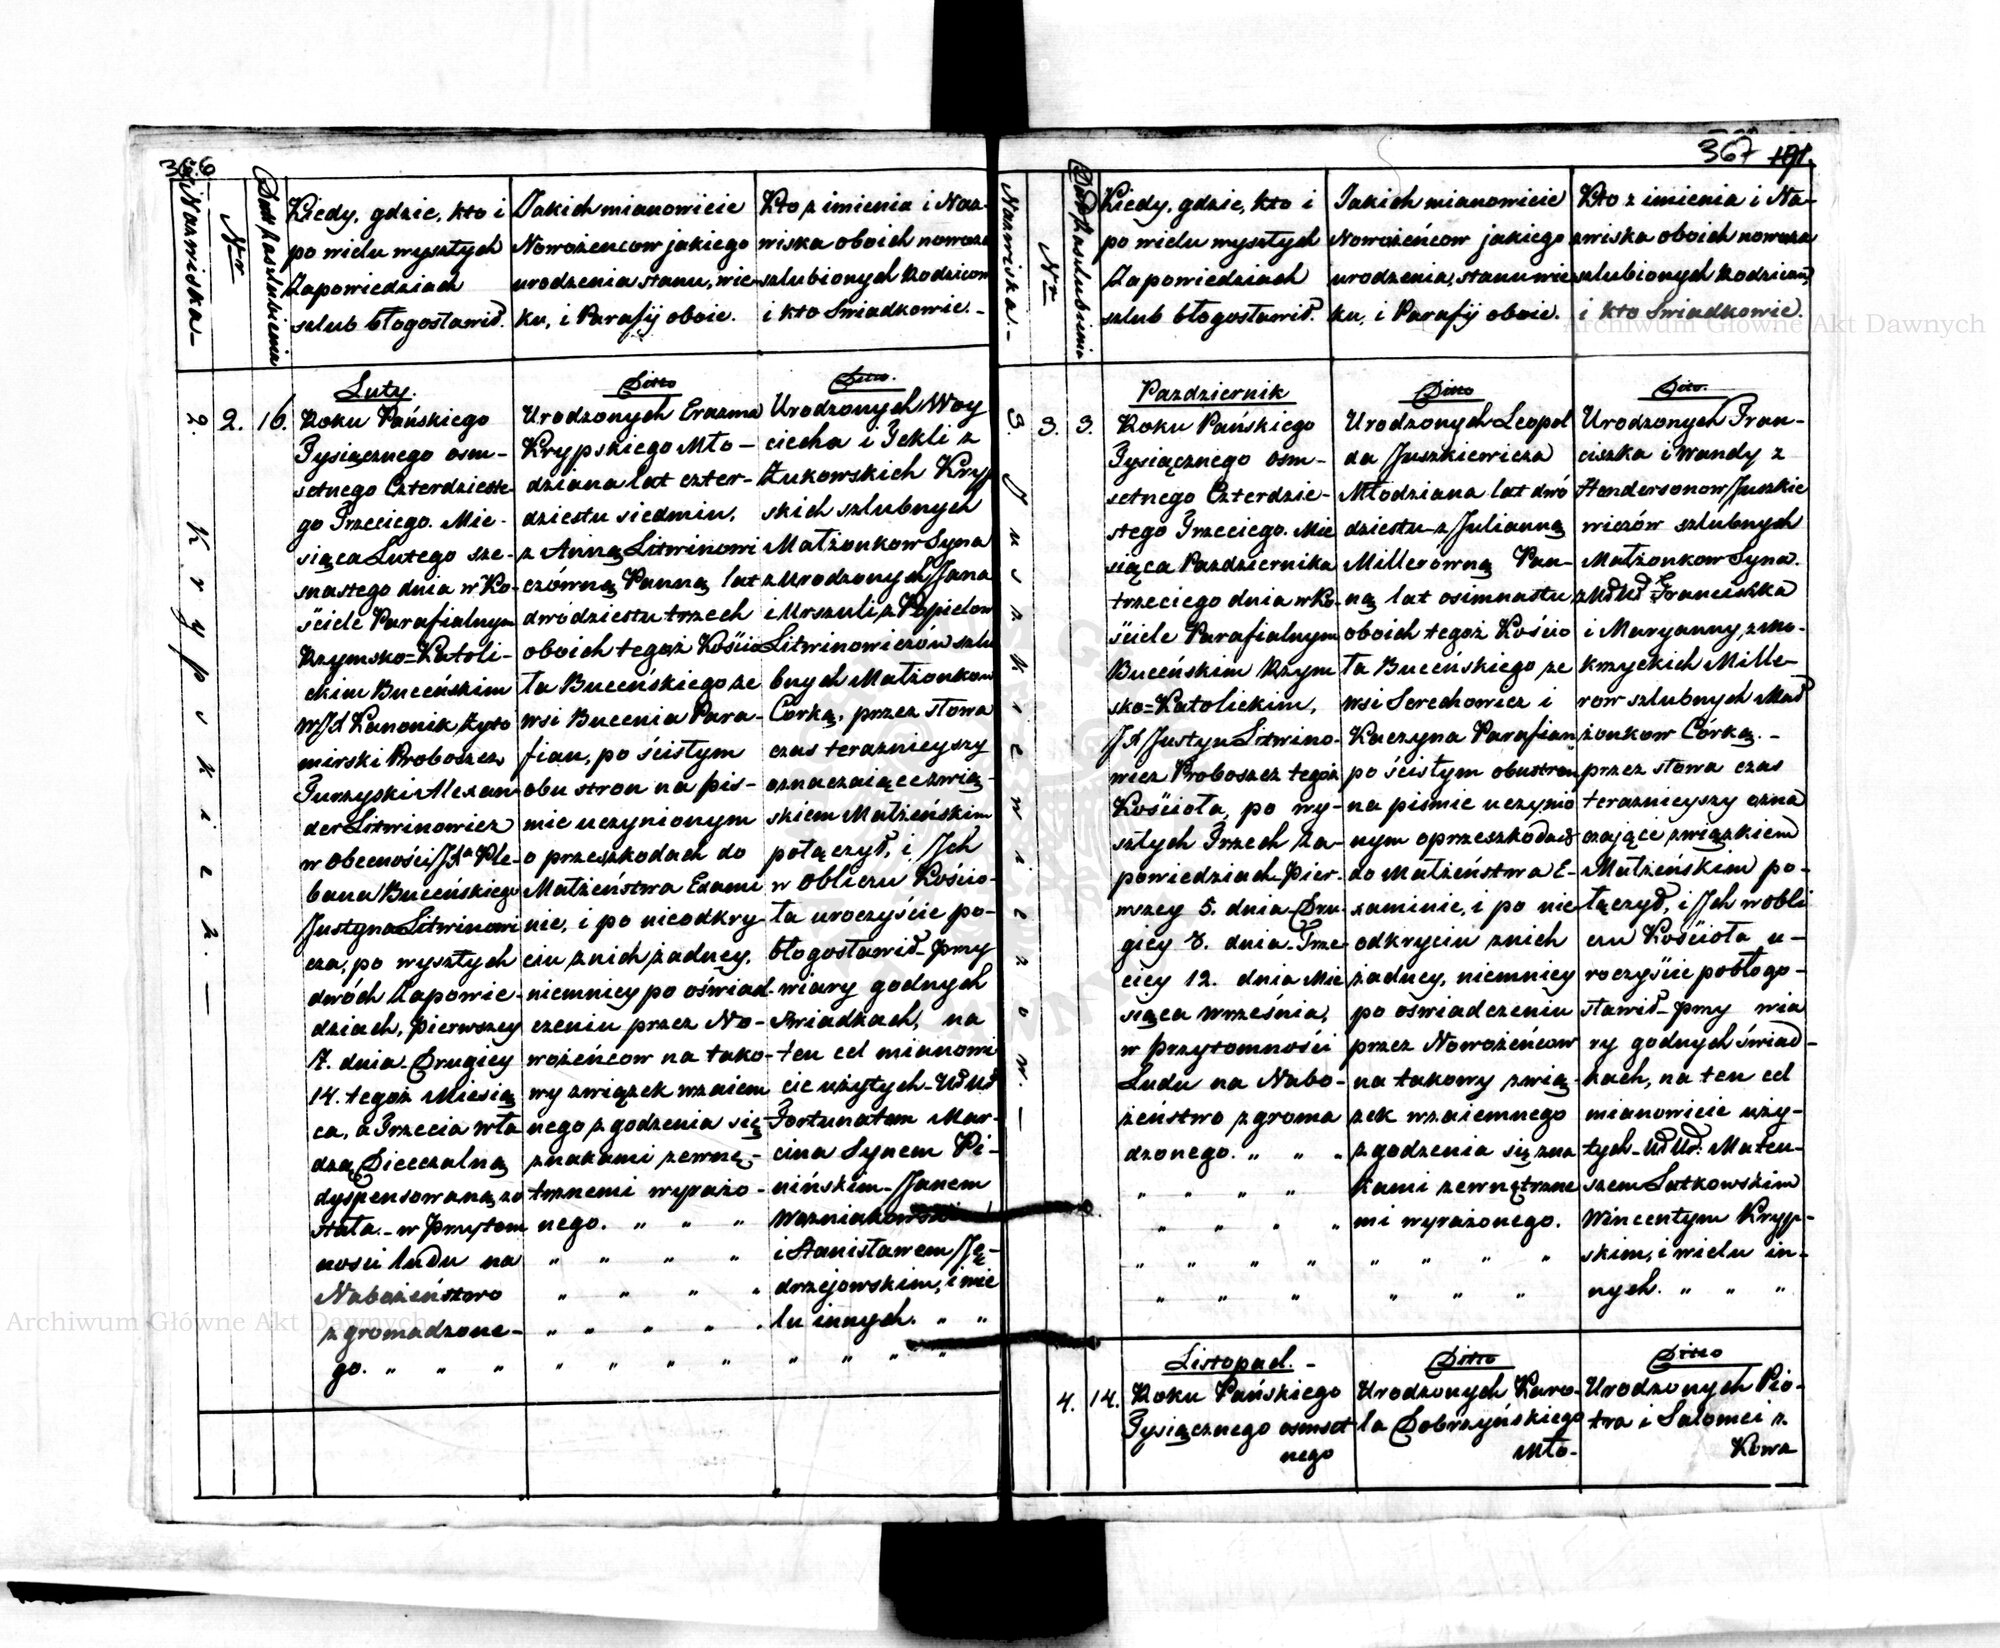 366
Nazwiska
Nr
Data zaszlubienia
Kiedy, gdzie, kto i
po wielu wyszłych
Zapowiedziach
szlub błogosławił.
Jakich mianowicie
Nowożencow jakiego
urodzenia stanu, wie-
ku, i Parafij oboie.
Kto z imienia i Naz-
wiska oboich nowoza
szlubionych Rodzicow
i kto Swiadkowie.
2. Krypskiicz.
2.
16.
Luty.
Roku Pańskiego
Tysiącznego osm-
setnego Czterdzieste-
go Trzeciego. Mie-
siąca Lutego sze-
snastego dnia w Ko-
sciele Parafialnym
Rzymsko=Katoli-
ckim Buceńskim
WJX Kanonik Żyto
mirski Proboszcz
Turzyski Alexan
der Litwinowicz
w obecności JXa Ple-
bana Buceńskiego
Justyna Litwinowi
cza, po wyszłych
dwóch Zapowie-
dziach, pierwszey
7. dnia Drugiey
14. tegoż Miesią
ca, a Trzecia wła
dzą Diecezalną
dyspensowaną zo
stała w przytom
ności ludu na
Nabożeństwo
zgromadzone-
go. " " "
Ditto
Urodzonych Erazma
Krypskiego Mło-
dziana lat czter-
dziestu siedmiu,
z Anną Litwinowi
czówną Panną lat
dwódziestu trzech
oboich tegoż Kościo
ła Buceńskiego ze
wsi Bucenia Para-
fian, po ścisłym
obu stron na piś-
mie uczynionym
o przeszkodach do
Małżeństwa Exami
nie, i po nieodkry
ciu z nich żadney,
niemniey po oświad-
czeniu przez No-
wożeńcow na tako-
wy związek wzaiem
nego zgodzenia się
znakami zewnę-
trznemi wyrażo-
nego. " " "
Ditto.
Urodzonych Woy
ciecha i Tekli z
Żukowskich Kryp
skich szlubnych
Małżonkow Syna
z Urodzonych Jana
i Urszuli z Popielow
Litwinowiczów szlu
bnych Małżonkow
Corką, przez słowa
czas teraznieyszy
oznaczaiące zwią-
zkiem Małżeńskim
połączył, i Ich
w obliczu Kościo-
ła uroczyście po-
błogosławił przy
wiary godnych
Swiadkach, na
ten cel mianowi
cie użytych UdUd
Fortunatem Mar-
cina Synem Pi-
nińskim Janem
Wozniakowski
i Stanisławem Ję-
drzejowskim, i wie
lu innych. " "
367 191.
Nazwiska.
Nr
Data zaszlubienia
Kiedy, gdzie, kto i
po wielu wyszłych
Zapowiedziach
szlub błogosławił.
Jakich mianowicie
Nowożeńcow jakiego
urodzenia, stanu wie
ku, i Parafij oboie.
Kto z imienia i Na-
zwiska oboich nowoza
szlubionych Rodzicow,
i kto Swiadkowie.
3. Juszkiewiczow.
3.
3.
Pazdziernik
Roku Pańskiego
Tysiącznego osm-
setnego Czterdzie-
stego Trzeciego. Mie
siąca Pazdziernika
trzeciego dnia w Ko-
sciele Parafialnym
Buceńskim Rzym
sko=Katolickim,
JX Justyn Litwino-
wicz Proboszcz tegoż
Kościoła, po wy-
szłych Trzech Za-
powiedziach pier-
wszey 5. dnia Dru-
giey 8. dnia Trze-
ciey 12. dnia Mie
siąca Września,
w przytomności
Ludu na Nabo-
żeństwo zgroma
dzonego. " " "
Ditto
Urodzonych Leopol
da Juszkiewicza
Młodziana lat dwó
dziestu z Julianną
Millerowną Pan-
ną lat osimnastu
oboich tegoż Kościo
ła Buceńskiego ze
wsi Serechowicz i
Kaczyna Parafian
po ścisłym obustron
na pismie uczynio
nym o przeszkodach
do Małżeństwa E-
xaminie, i po nie
odkryciu z nich
żadney, niemniey
po oświadczeniu
przez Nowożeńcow
na takowy zwią
zek wzaiemnego
zgodzenia się zna
kami zewnętrzne
mi wyrażonego.
Ditto.
Urodzonych Fran-
ciszka i Wandy z
Handersonow Juszkie
wiczów szlubnych
Małżonkow Syna.
z UdUd Franciszka
i Maryanny z Mo-
krzyckich Mille-
row szlubnych Mał
żonkow Córką. -
przez słowa czas
teraznieyszy ozna
czające związkiem
Małżeńskim po-
łączył, i Ich w obli
czu Kościoła u-
roczyście pobłogo-
sławił przy wia
ry godnych świad-
kach, na ten cel
mianowicie uży-
tych UdUd. Mateu-
szem Lutkowskim
Wincentym Kryp-
skim, i wielu in-
nych. " " "
4.
14.
Listopad. -
Roku Pańskiego
Tysiącznego osmset
nego
Ditto
Urodzonych Karo-
la Dobrzyńskiego
Mło-
Ditto
Urodzonych Pio-
tra i Salomei z
Kowa
Archiwum Główne Akt Dawnych
Archiwum Główne Akt Dawnych